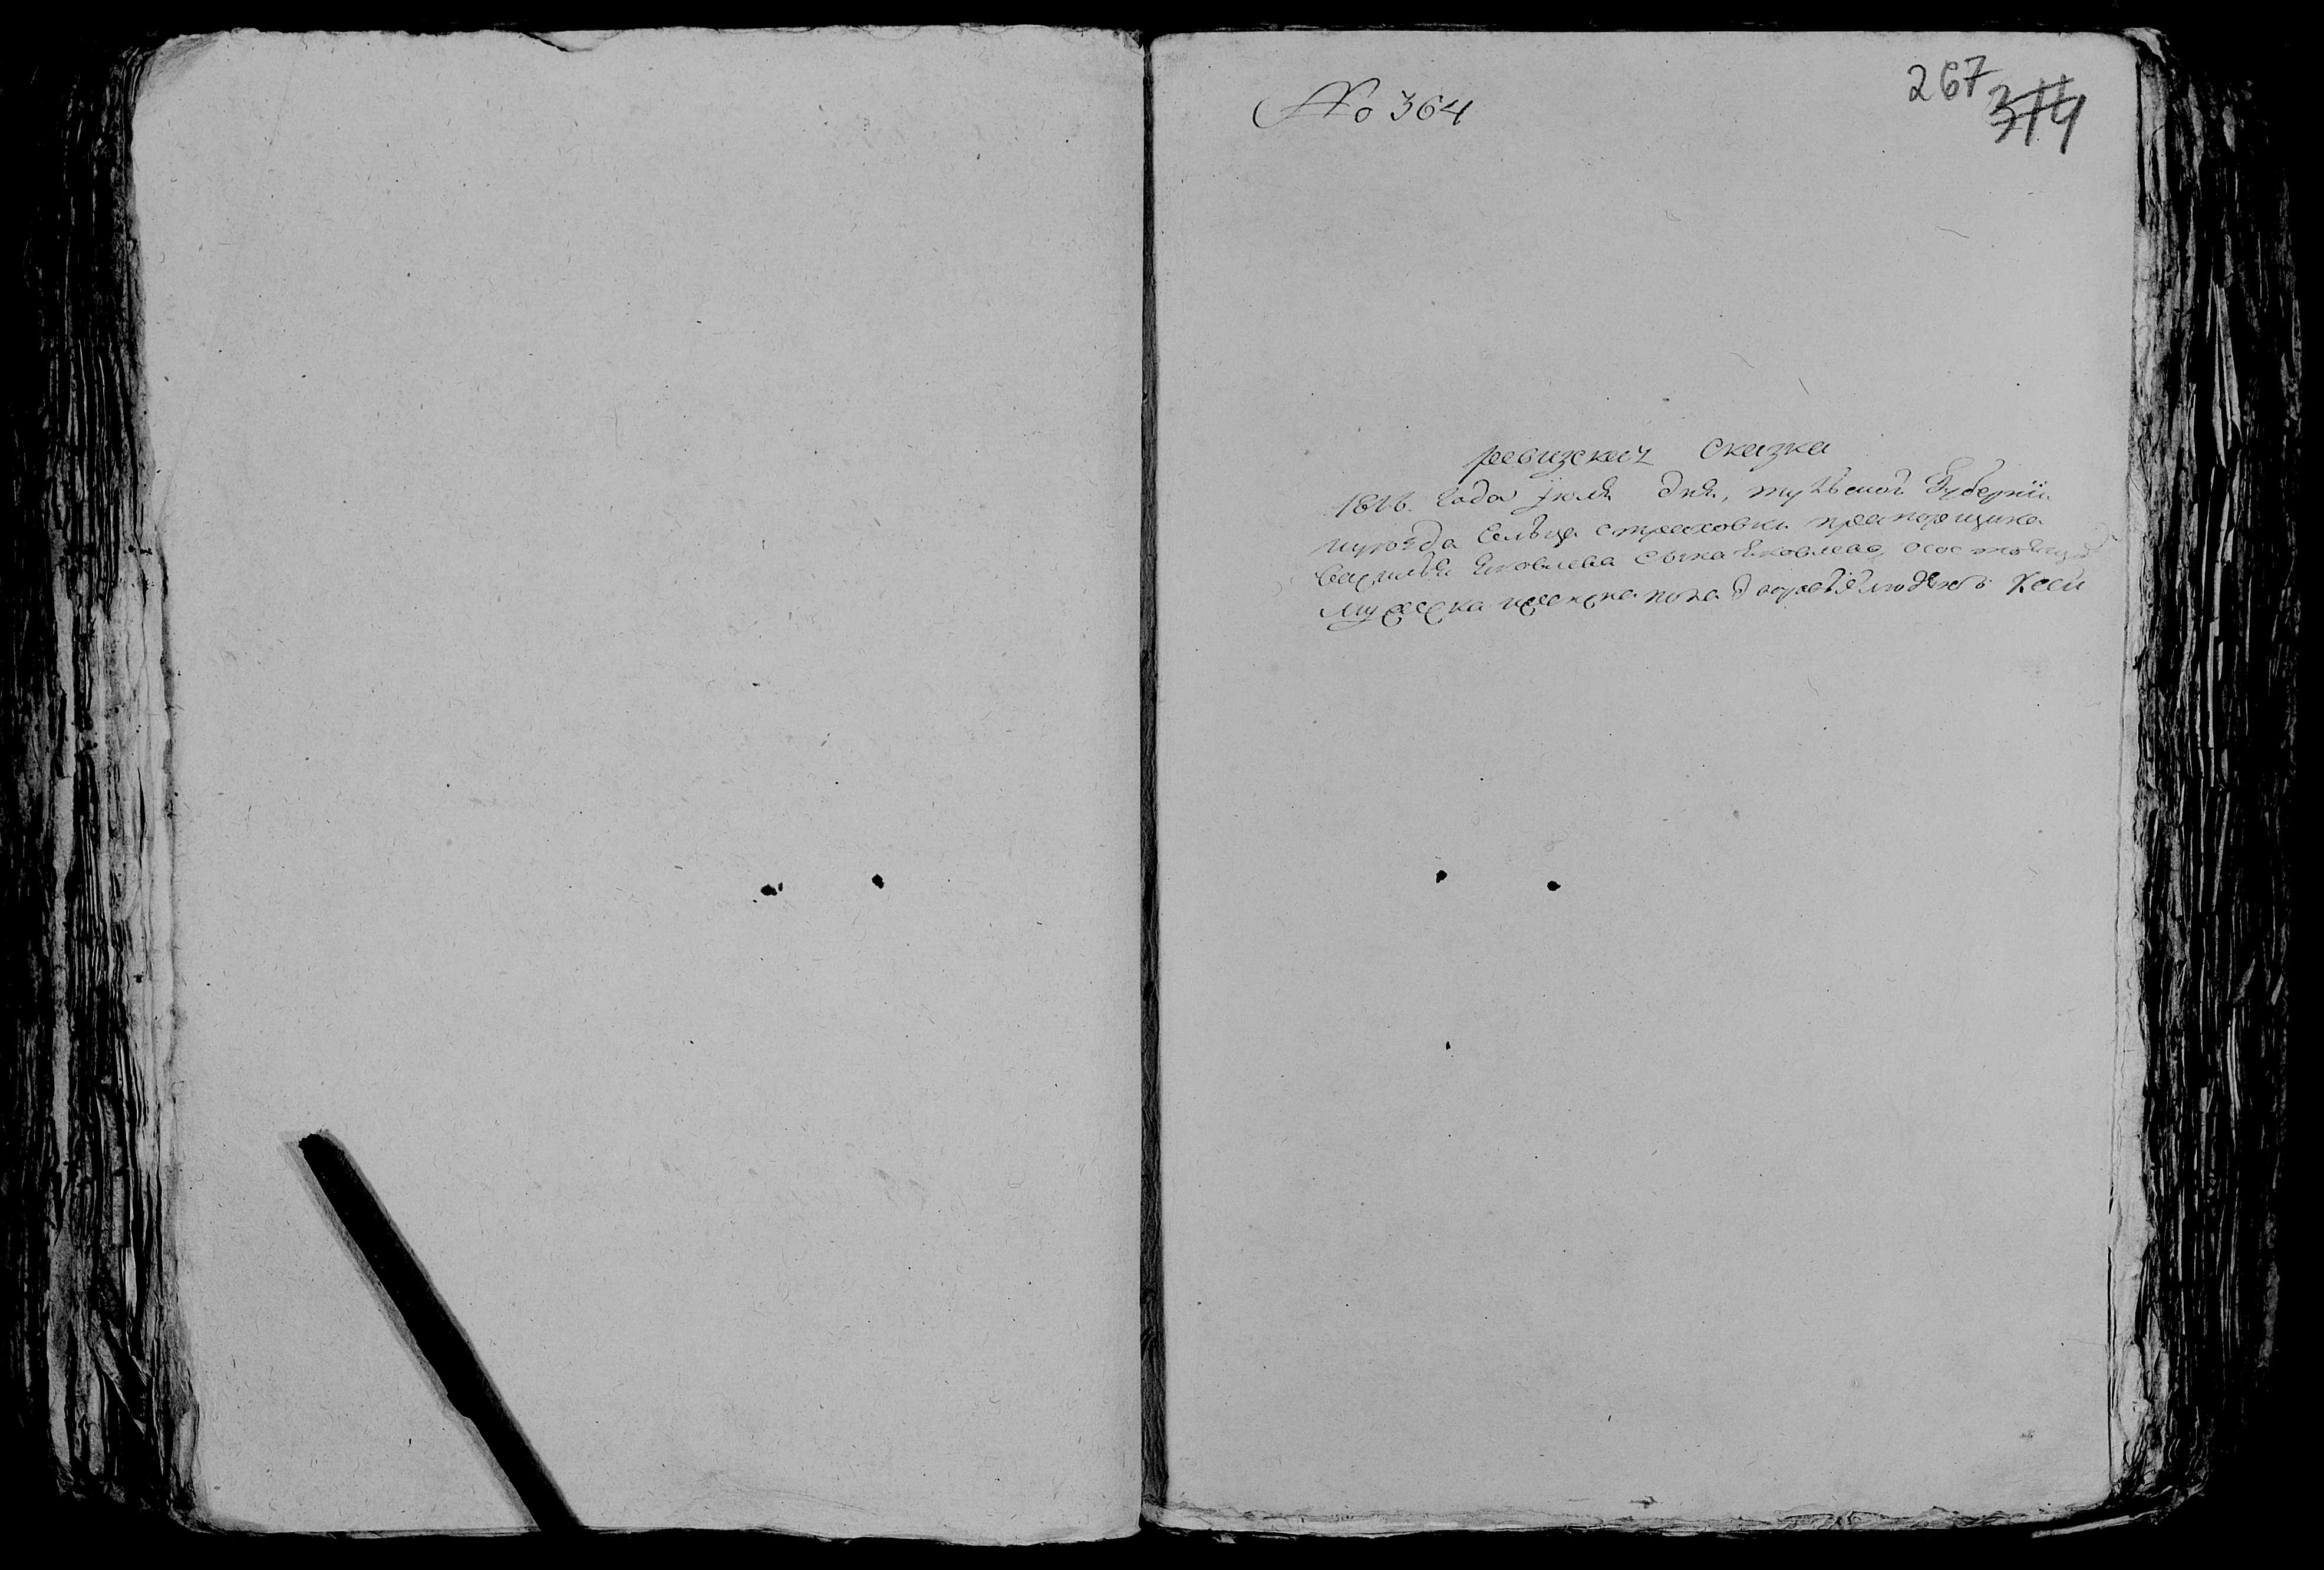 № 364
267
374
ревизская Сказка
1816. Года Июля дня, тульской Губернии
уезда Сельца страховки прапорщика
Василья Яковлева сына Яковлева, осостоящихъ
мужеска и женска пола дворовыхъ людехъ